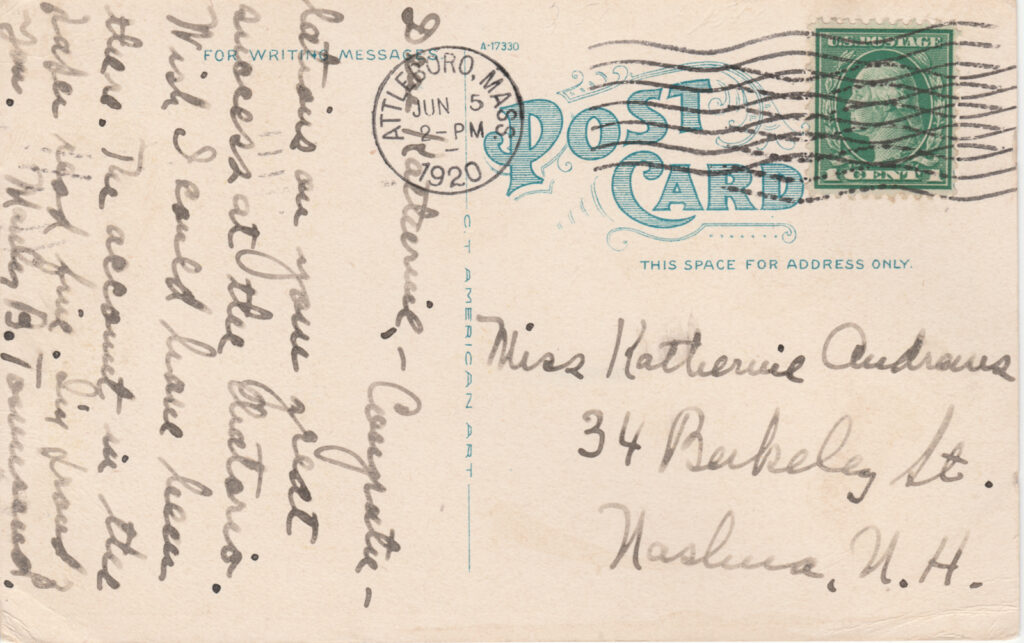 FOR WRITING MESSAGES
A-17330
Katherine, – Congratu-
lations on your great
success at the Oratorio.
Wish I could have been
there. The account in the
paper read fine. I'm proud of
you. B. Townsend.
ATTLEBORO, MASS
JUN 5
2-PM
1920
U.S. POSTAGE
1 CENT 1
POST
CARD
C.T. AMERICAN ART
THIS SPACE FOR ADDRESS ONLY.
Miss Katherine Andrews
34 Berkeley St.
Nashua, N.H.